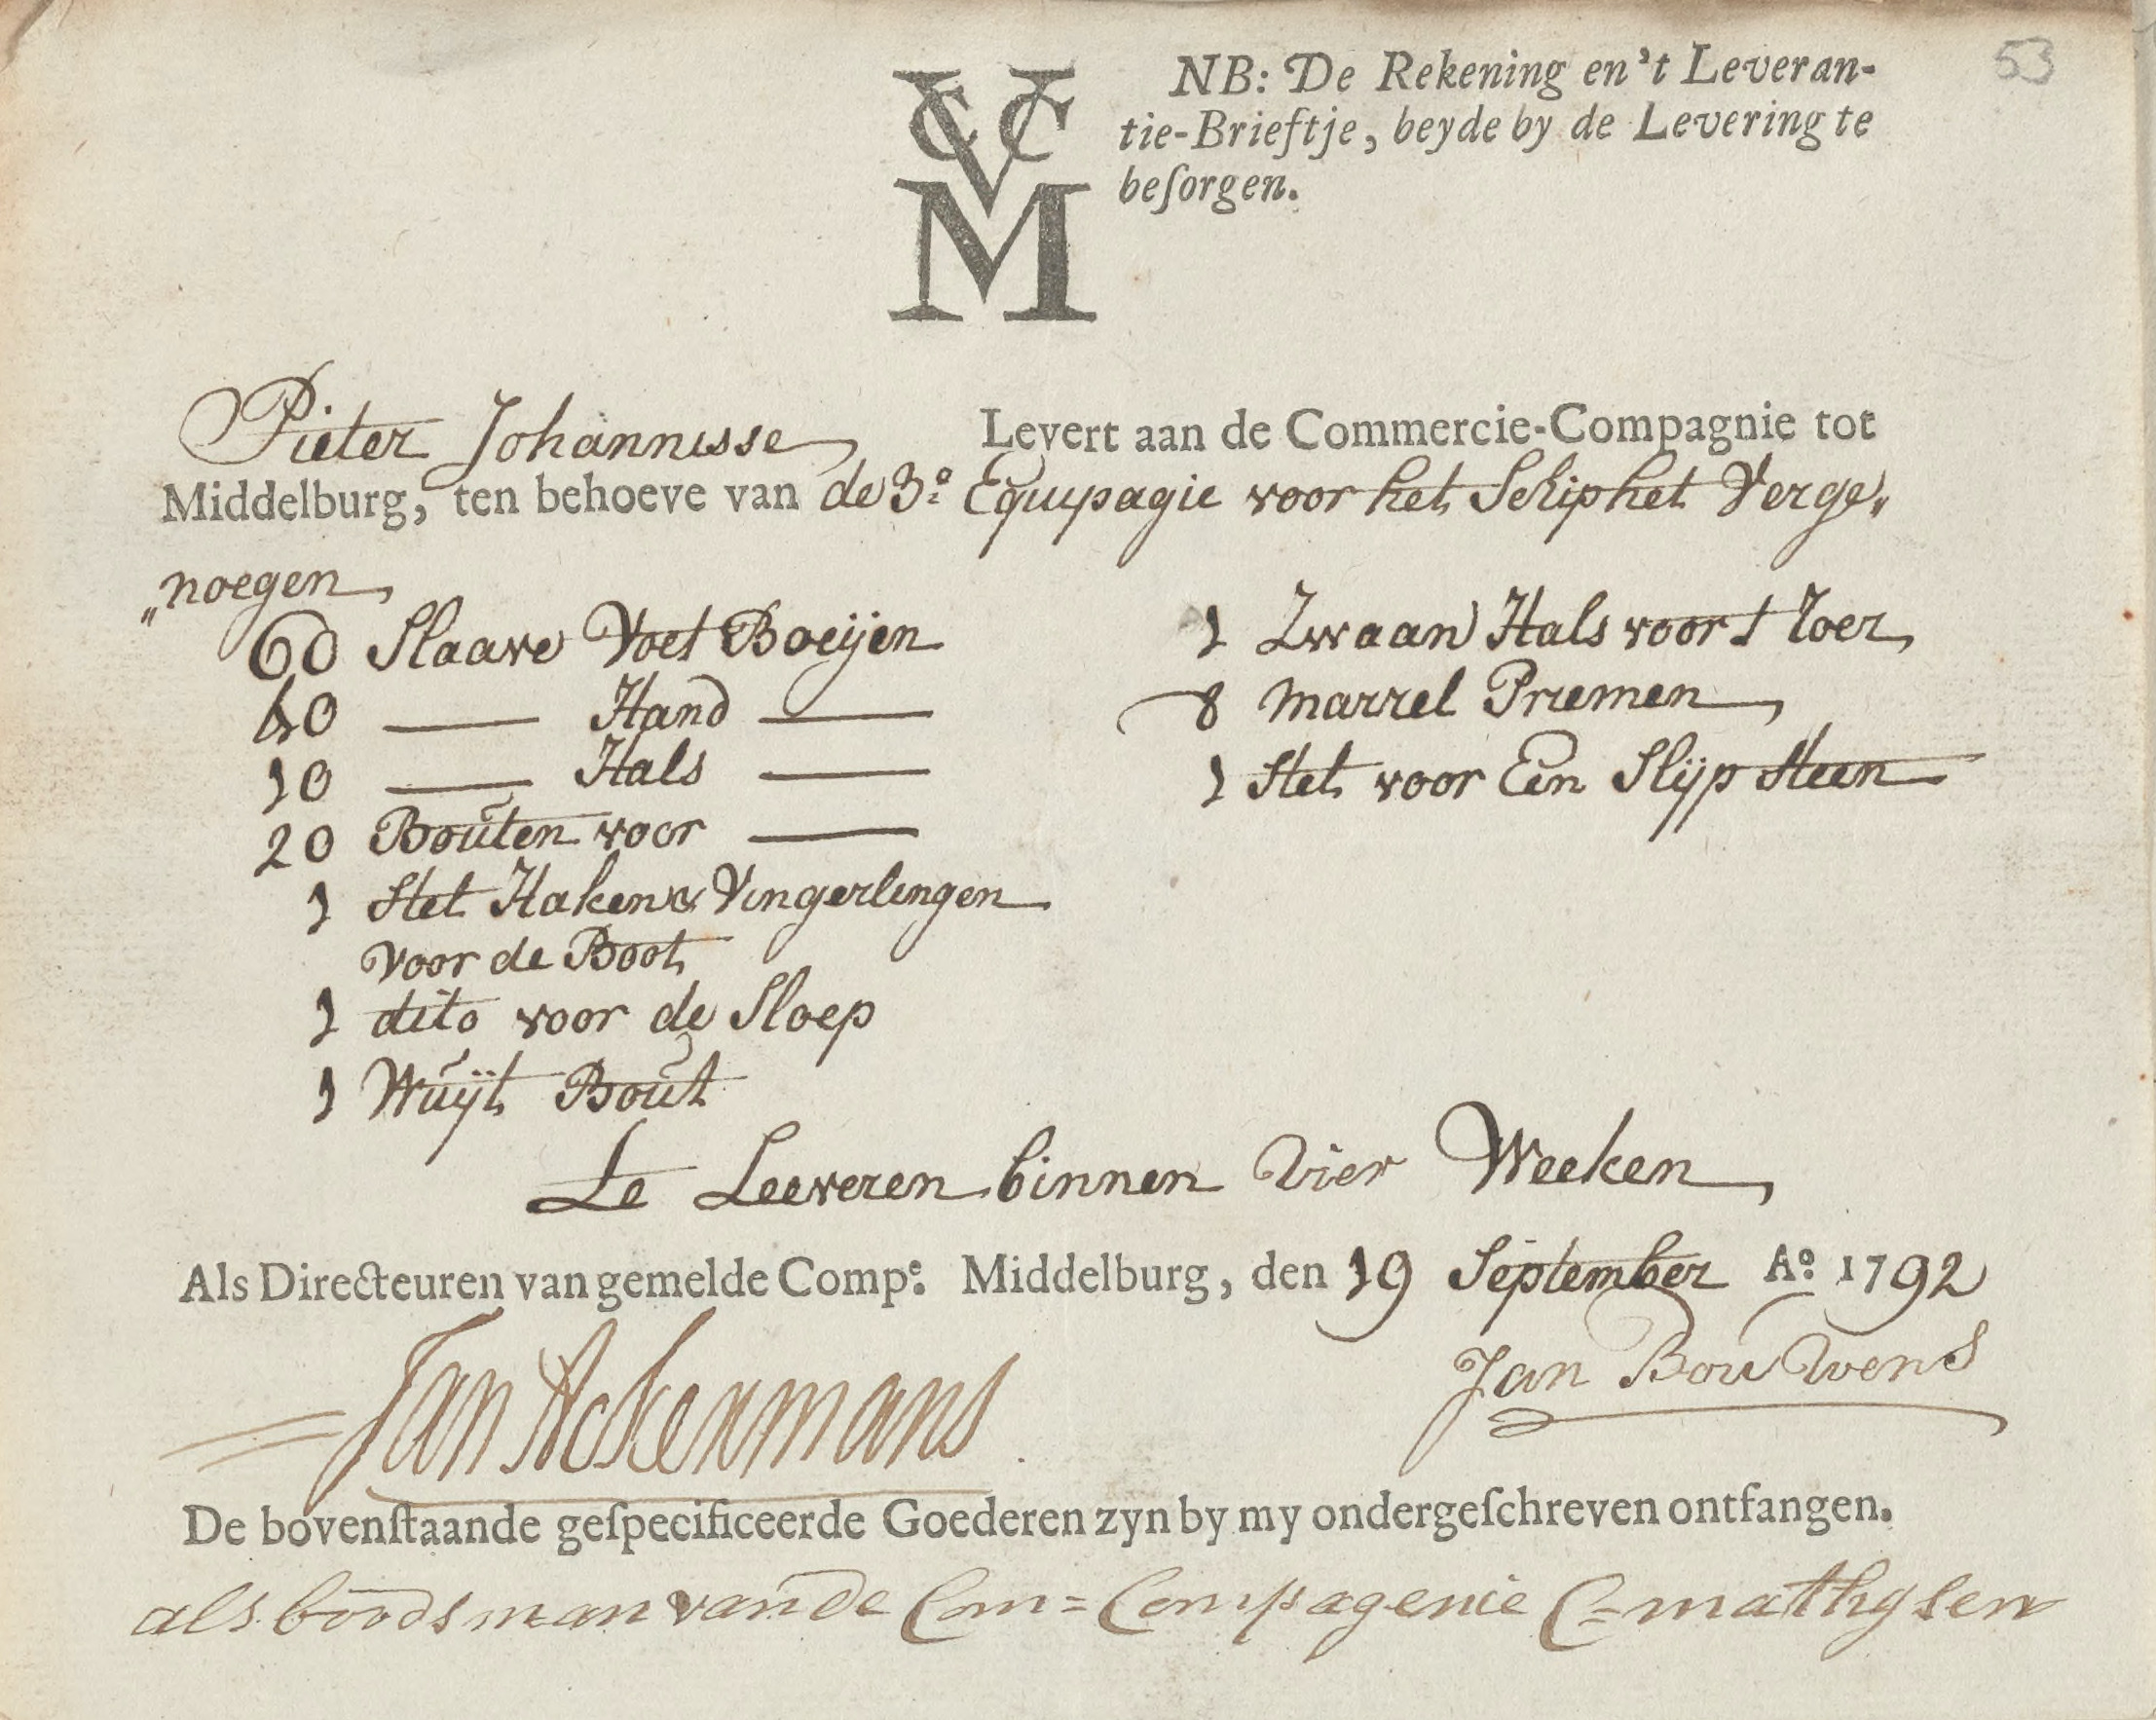 53
VCCM
NB: De Rekening en 't Leveran-
tie-Brieftje, beyde by de Levering te
beſorgen.
Pieter Johannisse Levert aan de Commercie-Compagnie tot
Middelburg, ten behoeve van de 3e Equipagie voor het Schip het Verge„
„noegen
60 Slaave Voet Boeijen
40 —— Hand ——
10 —— Hals ——
20 Bouten voor ——
1 Stel Haken & Vingerlingen
voor de Boot
1 dito voor de Sloep
1 Wuijt Bout
1 Zwaan Hals voor t Roer
8 Marrel Priemen
1 Stel voor Een Slijp Steen
Te Leeveren binnen vier Weeken
Als Directeuren van gemelde Compe: Middelburg, den 19 September Ao: 1792
Jan Ackermans
Jan Bouwens
De bovenſtaande geſpecificeerde Goederen zyn by my ondergeſchreven ontfangen.
als boodsman van de Com= Compagenie C= mathysen